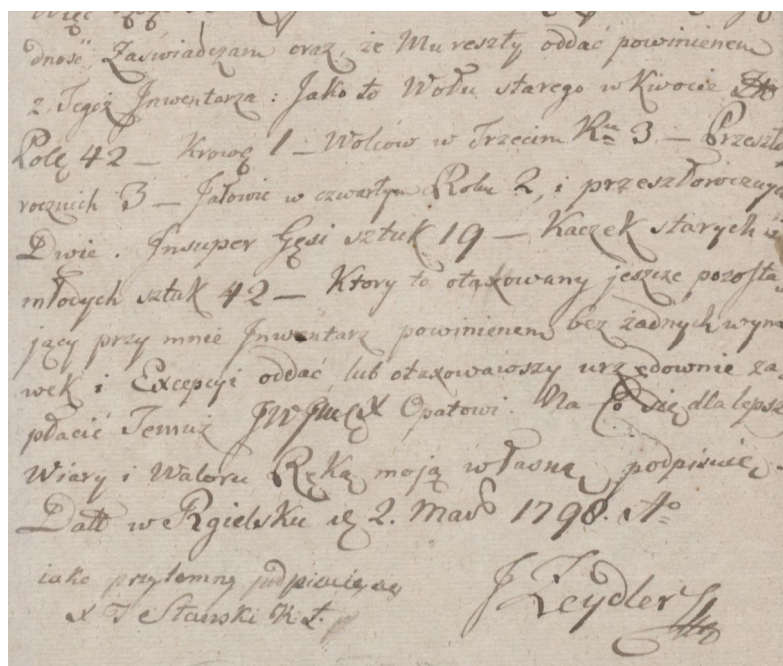 dność, Zaświadczam oraz, że Mu reszty oddać powinienem
z Tegoż Jnwentarza: Jako to Wołu starego w Kwocie
Polę 42 – Krowę 1 – Wolców w Trzecim Ru 3 – Przeszło
rocznich 3 – Jałowic w czwartym Roku 2, i przeszłorocznych
Dwie. Jnsuper Gęsi sztuk 19 – Kaczek starych i
młodych sztuk 42 – Ktory to otaxowany jeszcze pozosta
jący przy mnie Jnwentarz powinienem bez żadnych wymó
wek i Excepcyi oddać, lub otaxowawszy urzędownie za
płacić Temuż JWJmci X Opatowi. Na Co się dla lepsz
Wiary i Waloru Ręką moją własną podpisuię –
Datt w Rgielsku d 2. Maĵ 1798. Ao
iako przytemny podpisuię się
X T Stanski K.
J Zeydler